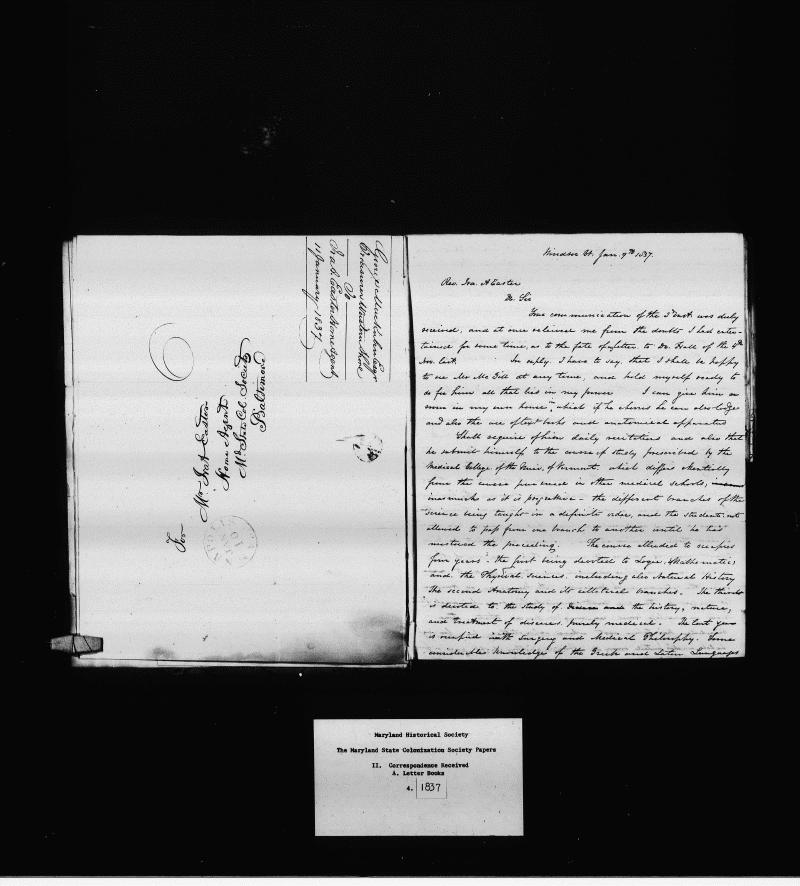 George Mackubin Esqr
Treasurer Western Shore
To
Ira A Easter Home Agent
11 January 1837
For
Mr Ira A Easter
Home Agent
Md State Col. Society
Baltimore
Windsor Vt. Jan. 9th 1837.
Rev. Ira. A Easter
Dr. Sir
Your communication of the 3d inst. was duly
received, and at once relieved me from the doubts I had enter-
tained for some time, as to the fate of a letter to Dr. Hall of the 4th
Nov. last. In reply, I have to say, that I shall be happy
to see Mr Mc Gill at any time, and hold myself ready to
do for him all that lies in my power I can give him a
room in my own house, which if he choses he can also lodge
and also the use of text books and anatomical apparatus
Shall require of him daily recitations and also that
he submit himself to the course of study prescribed by the
Medical College of the Univ. of Vermont, which differs essentially
from the course pursued in other medical schools,
inasmuch as it is progressive - the different branches of the
science being taught in a definite order, and the students not
allowed to pass from one branch to another until he has
mastered the preceeding. The course alluded to occupies
four years - the first being devoted to Logic, Mathematics
and the Physical sciences including also Natural History
The second Anatomy and its collateral branches. The third
is devoted to the study of the history, nature,
and treatment of diseases purely medical. The last year
is occupied with Surgery and Medical Philosophy. Some
considerable knowledge of the Greek and Latin Languages
Maryland Historical Society
The Maryland State Colonization Society Papers
II. Correspondence Received
A. Letter Books
4. 1837